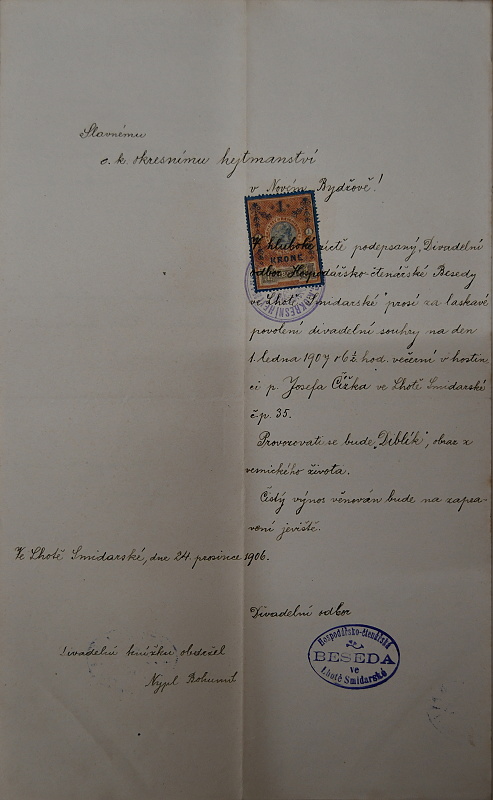 Slavnému
c. k. okresnímu hejtmanství
v Novém Bydžově!
1
KRONE
V hluboké úctě podepsaný „Divadelní
odbor Hospodářsko-čtenářské Besedy
ve Lhotě Smidarské" prosí za laskavé
povolení divadelní souhry na den
1. ledna 1907 v 6½ hod. večerní v hostin
ci p. Josefa Čížka ve Lhotě Smidarské
č.p. 35.
Provozovati se bude „Diblík", obraz z
vesnického života.
Čistý výnos věnován bude na zapra-
vení jeviště.
Ve Lhotě Smidarské, dne 24. prosince 1906.
Divadelní odbor
Hospodářsko-čtenářská
BESEDA
ve
Lhotě Smidarské
Divadelní knížku obdržel
Nypl Bohumil